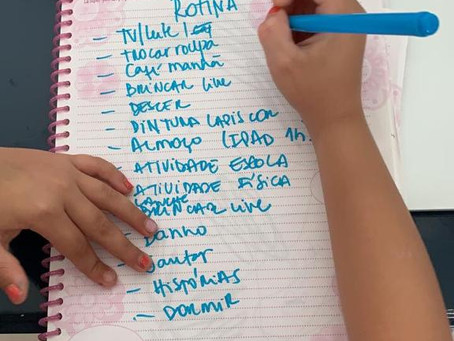 ROTINA
- TV/Leite /
- TROCAR ROUPA
- Café manhã
- BRINCAR Live
- DESCER
- PINTURA LAPIS COR
- Almoço (IPAD 1h
- ATIVIDADE ESCOLA
- ATIVIDADE FÍSICA
LANCHE
BRINCAR Live
- Banho
- Jantar
- HISTÓRIAS
- DORMIR